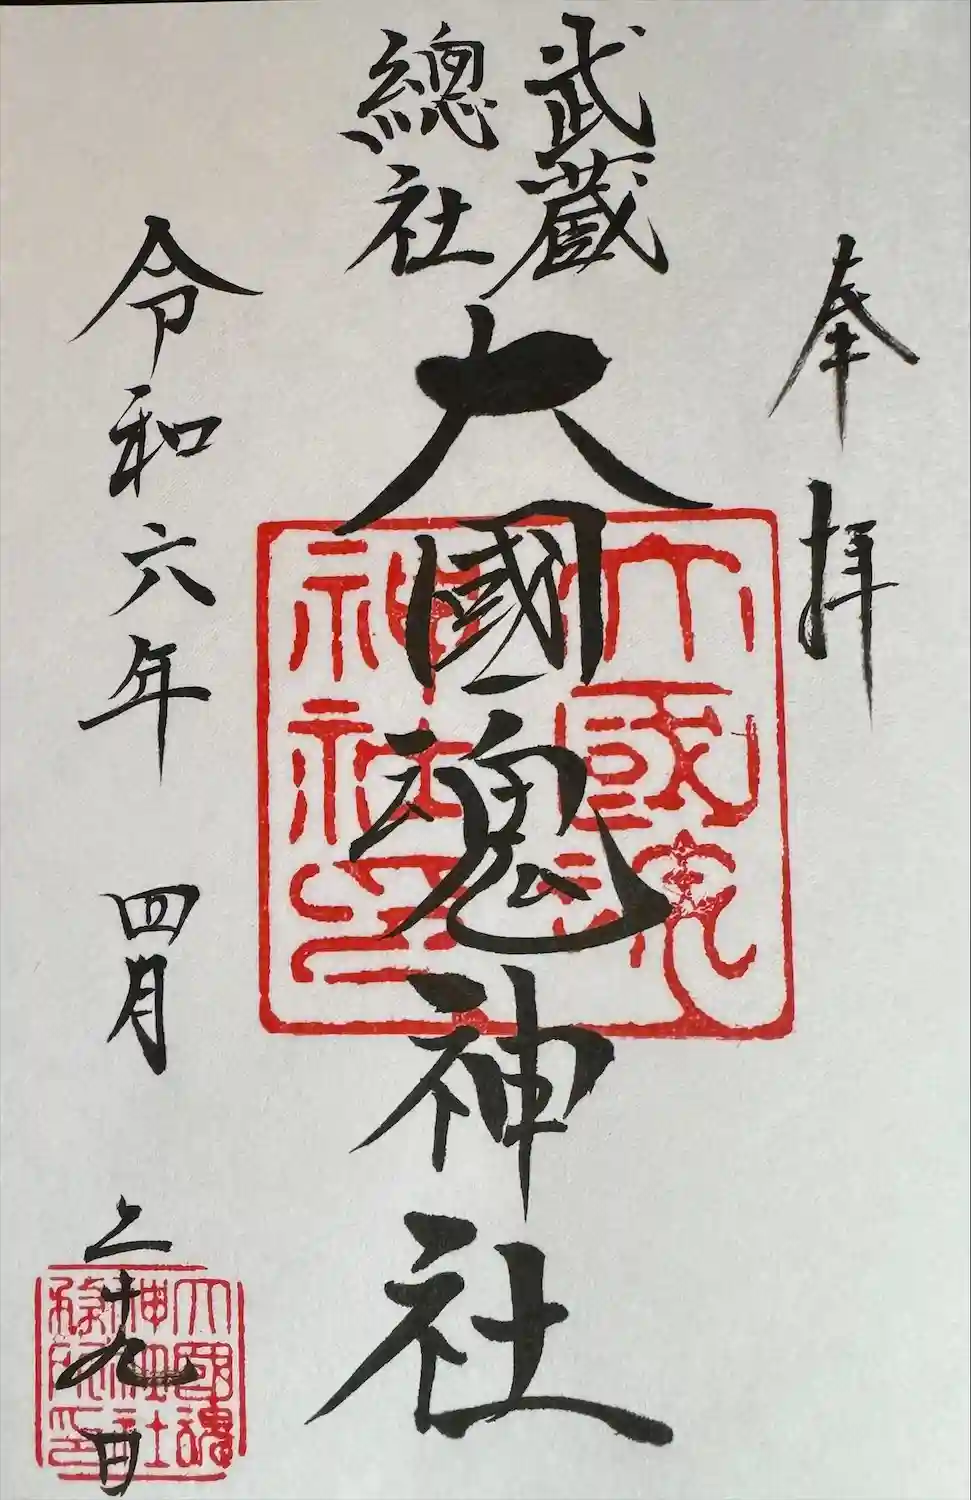 奉拝
武蔵
總社
大國魂神社
令和六年 四月 二十九日
大國魂
神社印
大國魂
神社社
務所印